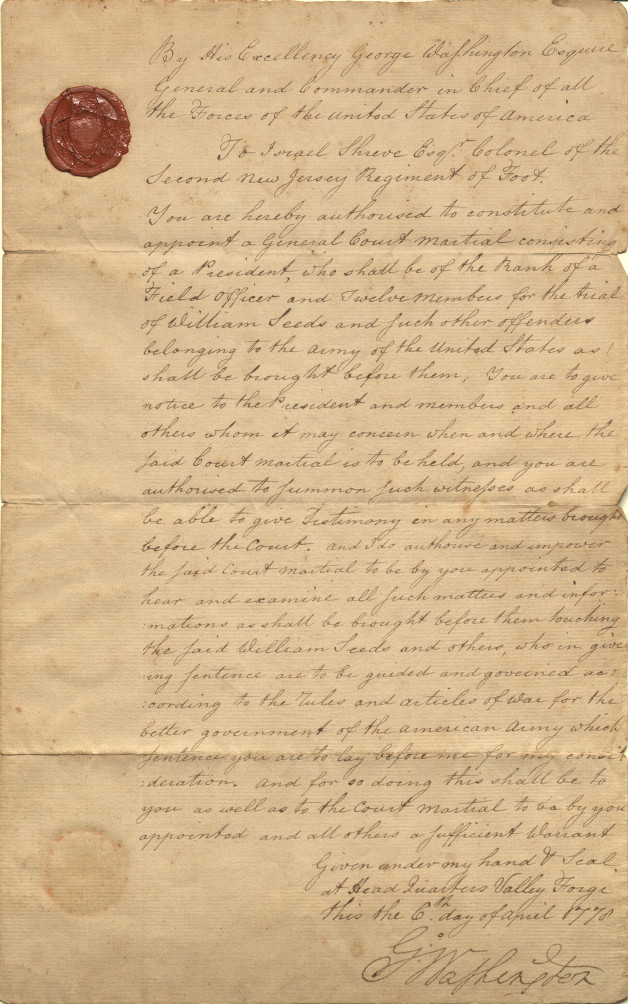 By His Excellency George Washington Esquire
General and Commander in Chief of all
the Forces of the United States of America
To Israel Shreve Esqr. Colonel of the
Second New Jersey Regiment of Foot.
You are hereby authorised to constitute and
appoint a General Court Martial consisting
of a President, who shall be of the Rank of a
Field Officer and Twelve Members for the trial
of William Seeds and such other offenders
belonging to the Army of the United States as
shall be brought before them, You are to give
notice to the President and members and all
others whom it may concern when and where the
said Court Martial is to be held, and you are
authorised to summon such witnesses as shall
be able to give Testimony in any matters brought
before the Court. And I do authorise and impower
the said Court Martial to be by you appointed to
hear and examine all such matters and infor:
:mations as shall be brought before them touching
the said William Seeds and others, who in give
:ing sentence are to be guided and governed ac:
:cording to the Rules and articles of War for the
better government of the American Army which
sentence you are to lay before me for my consi:
:deration. And for so doing this shall be to
you as well as to the Court Martial to be by you
appointed and all others a sufficient Warrant
Given under my hand & Seal
at Head Quarters Valley Forge
this the 6th. day of April 1778
Go Washington